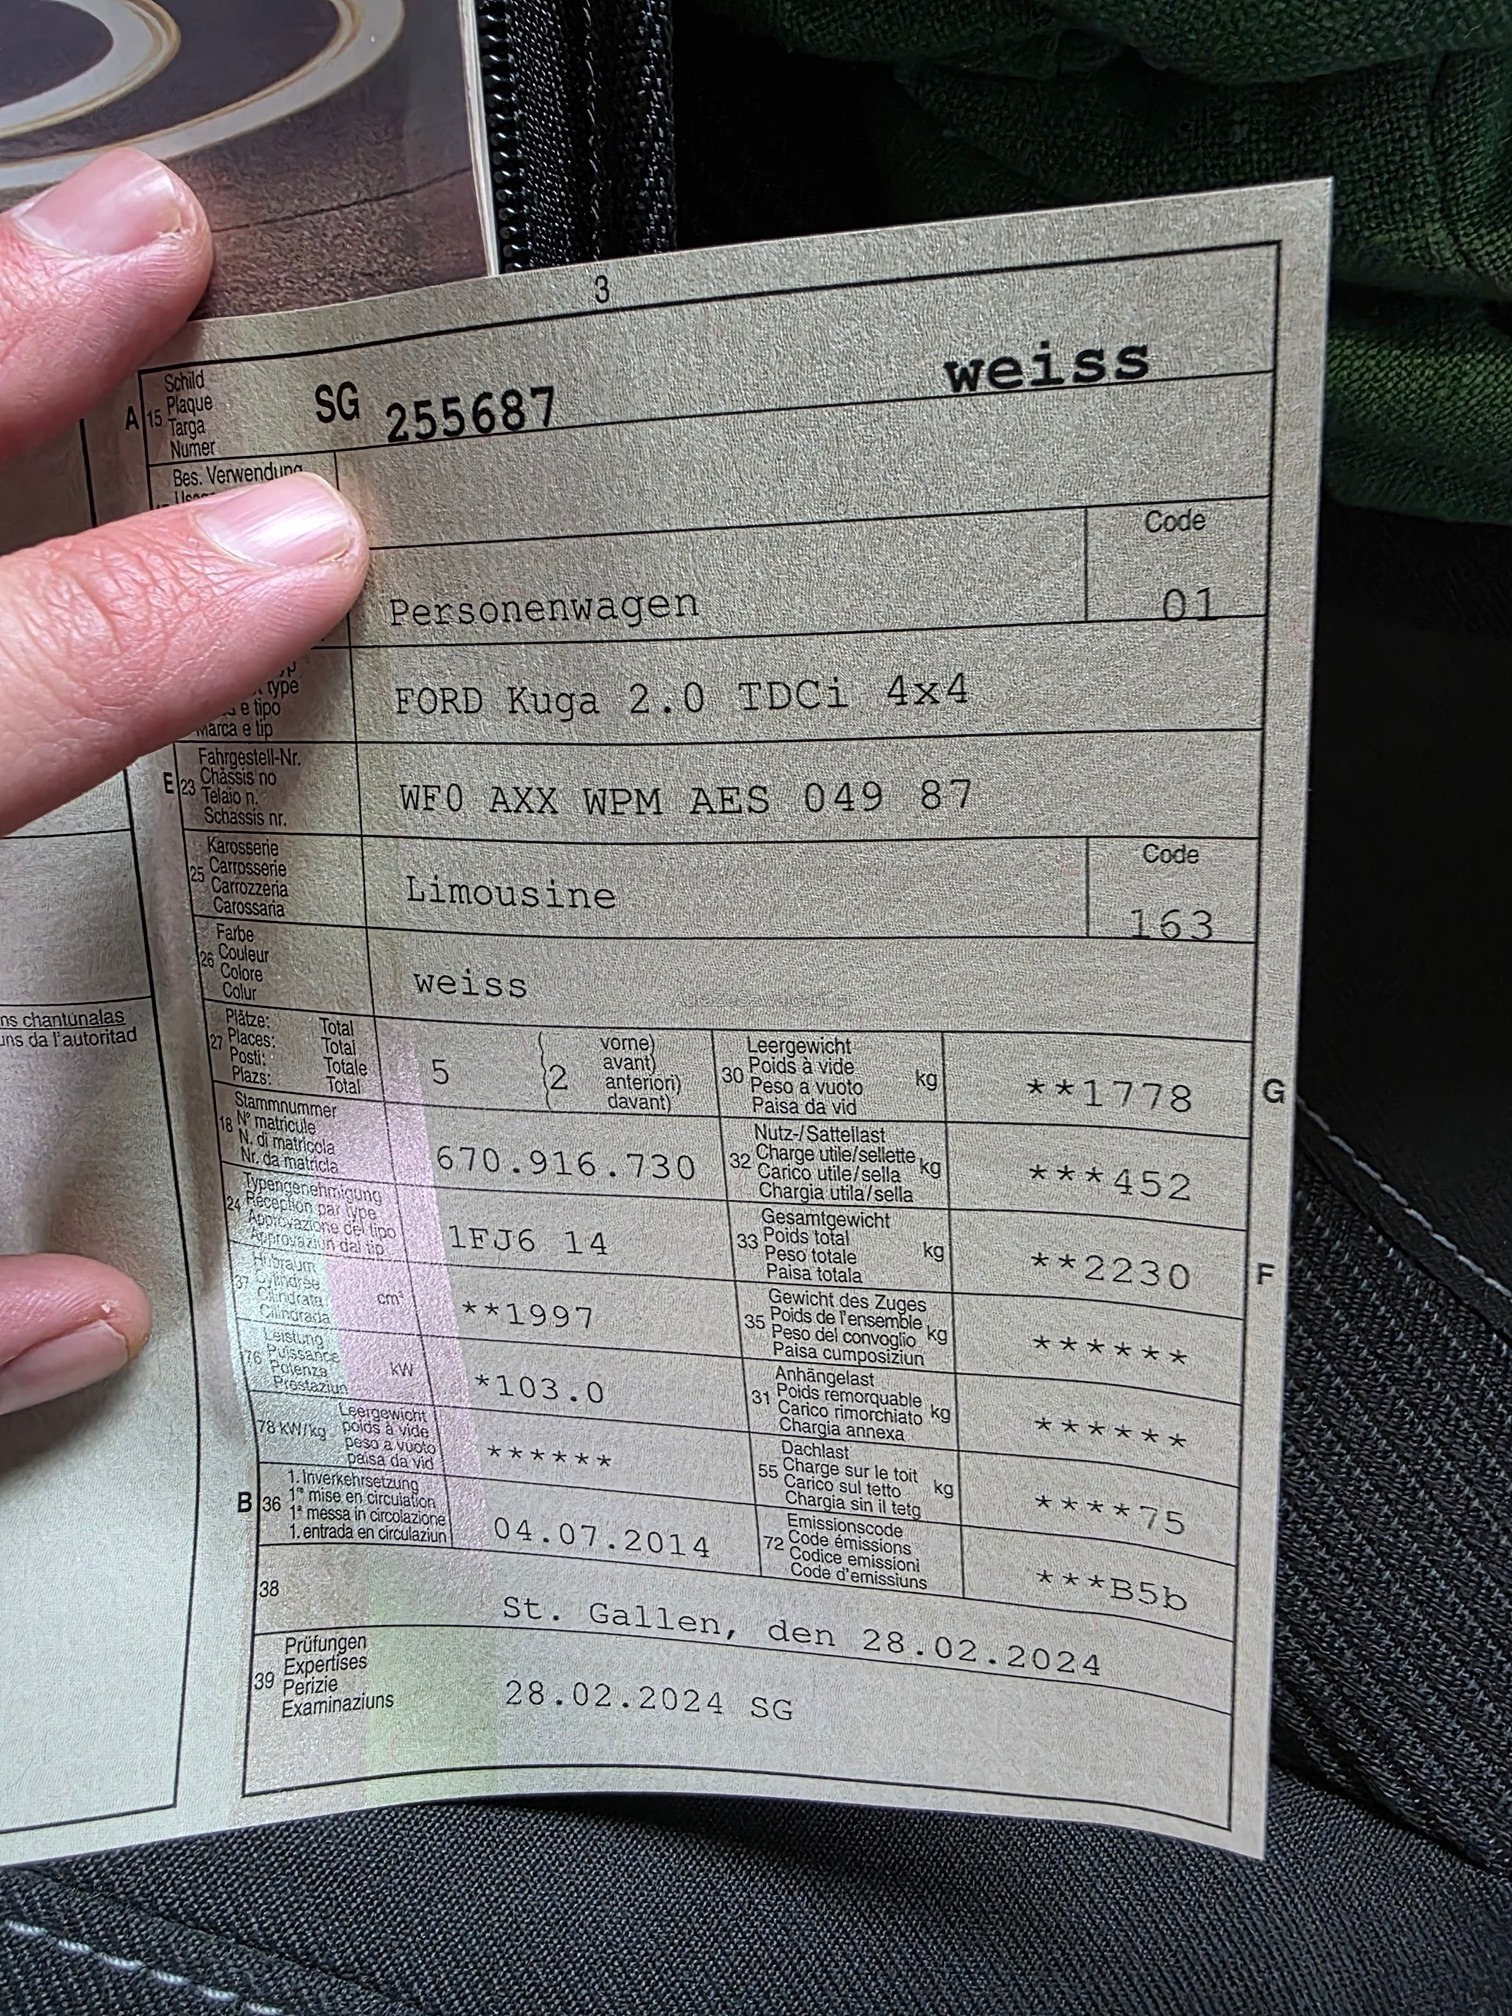 3
A 15 Schild Plaque Targa Numer SG 255687 weiss
Bes. Verwendung
Code
Personenwagen 01
type
e tipo
Marca e tip
FORD Kuga 2.0 TDCi 4x4
E 23 Fahrgestell-Nr.
Châssis no
Telaio n.
Schassis nr.
WF0 AXX WPM AES 049 87
25 Karosserie
Carrosserie
Carrozzeria
Carossaria
Limousine
Code
163
26 Farbe
Couleur
Colore
Colur
weiss
27 Plätze: Total
Places: Total
Posti: Totale
Plazs: Total
5 (2 vorne)
avant)
anteriori)
davant)
30 Leergewicht
Poids à vide kg
Peso a vuoto
Paisa da vid
**1778 G
18 Stammnummer
N° matricule
N. di matricola
Nr. da matricla
670.916.730
32 Nutz-/Sattellast
Charge utile/sellette kg
Carico utile/sella
Chargia utila/sella
***452
24 Typengenehmigung
Réception par type
Approvazione del tipo
Approvaziun dal tip
1FJ6 14
33 Gesamtgewicht
Poids total kg
Peso totale
Paisa totala
**2230 F
37 Hubraum
Cylindrée
Cilindrata cm³
Cilindrada
**1997
35 Gewicht des Zuges
Poids de l'ensemble kg
Peso del convoglio
Paisa cumposiziun
******
76 Leistung
Puissance
Potenza kW
Prestaziun
*103.0
31 Anhängelast
Poids remorquable kg
Carico rimorchiato
Chargia annexa
******
78 kW/kg Leergewicht
poids à vide
peso a vuoto
paisa da vid
******
55 Dachlast
Charge sur le toit kg
Carico sul tetto
Chargia sin il tetg
****75
B 36 1. Inverkehrsetzung
1re mise en circulation
1a messa in circolazione
1. entrada en circulaziun
04.07.2014
72 Emissionscode
Code émissions
Codice emissioni
Code d'emissiuns
***B5b
38 St. Gallen, den 28.02.2024
39 Prüfungen
Expertises
Perizie
Examinaziuns
28.02.2024 SG
ns chantunalas
uns da l'autoritad